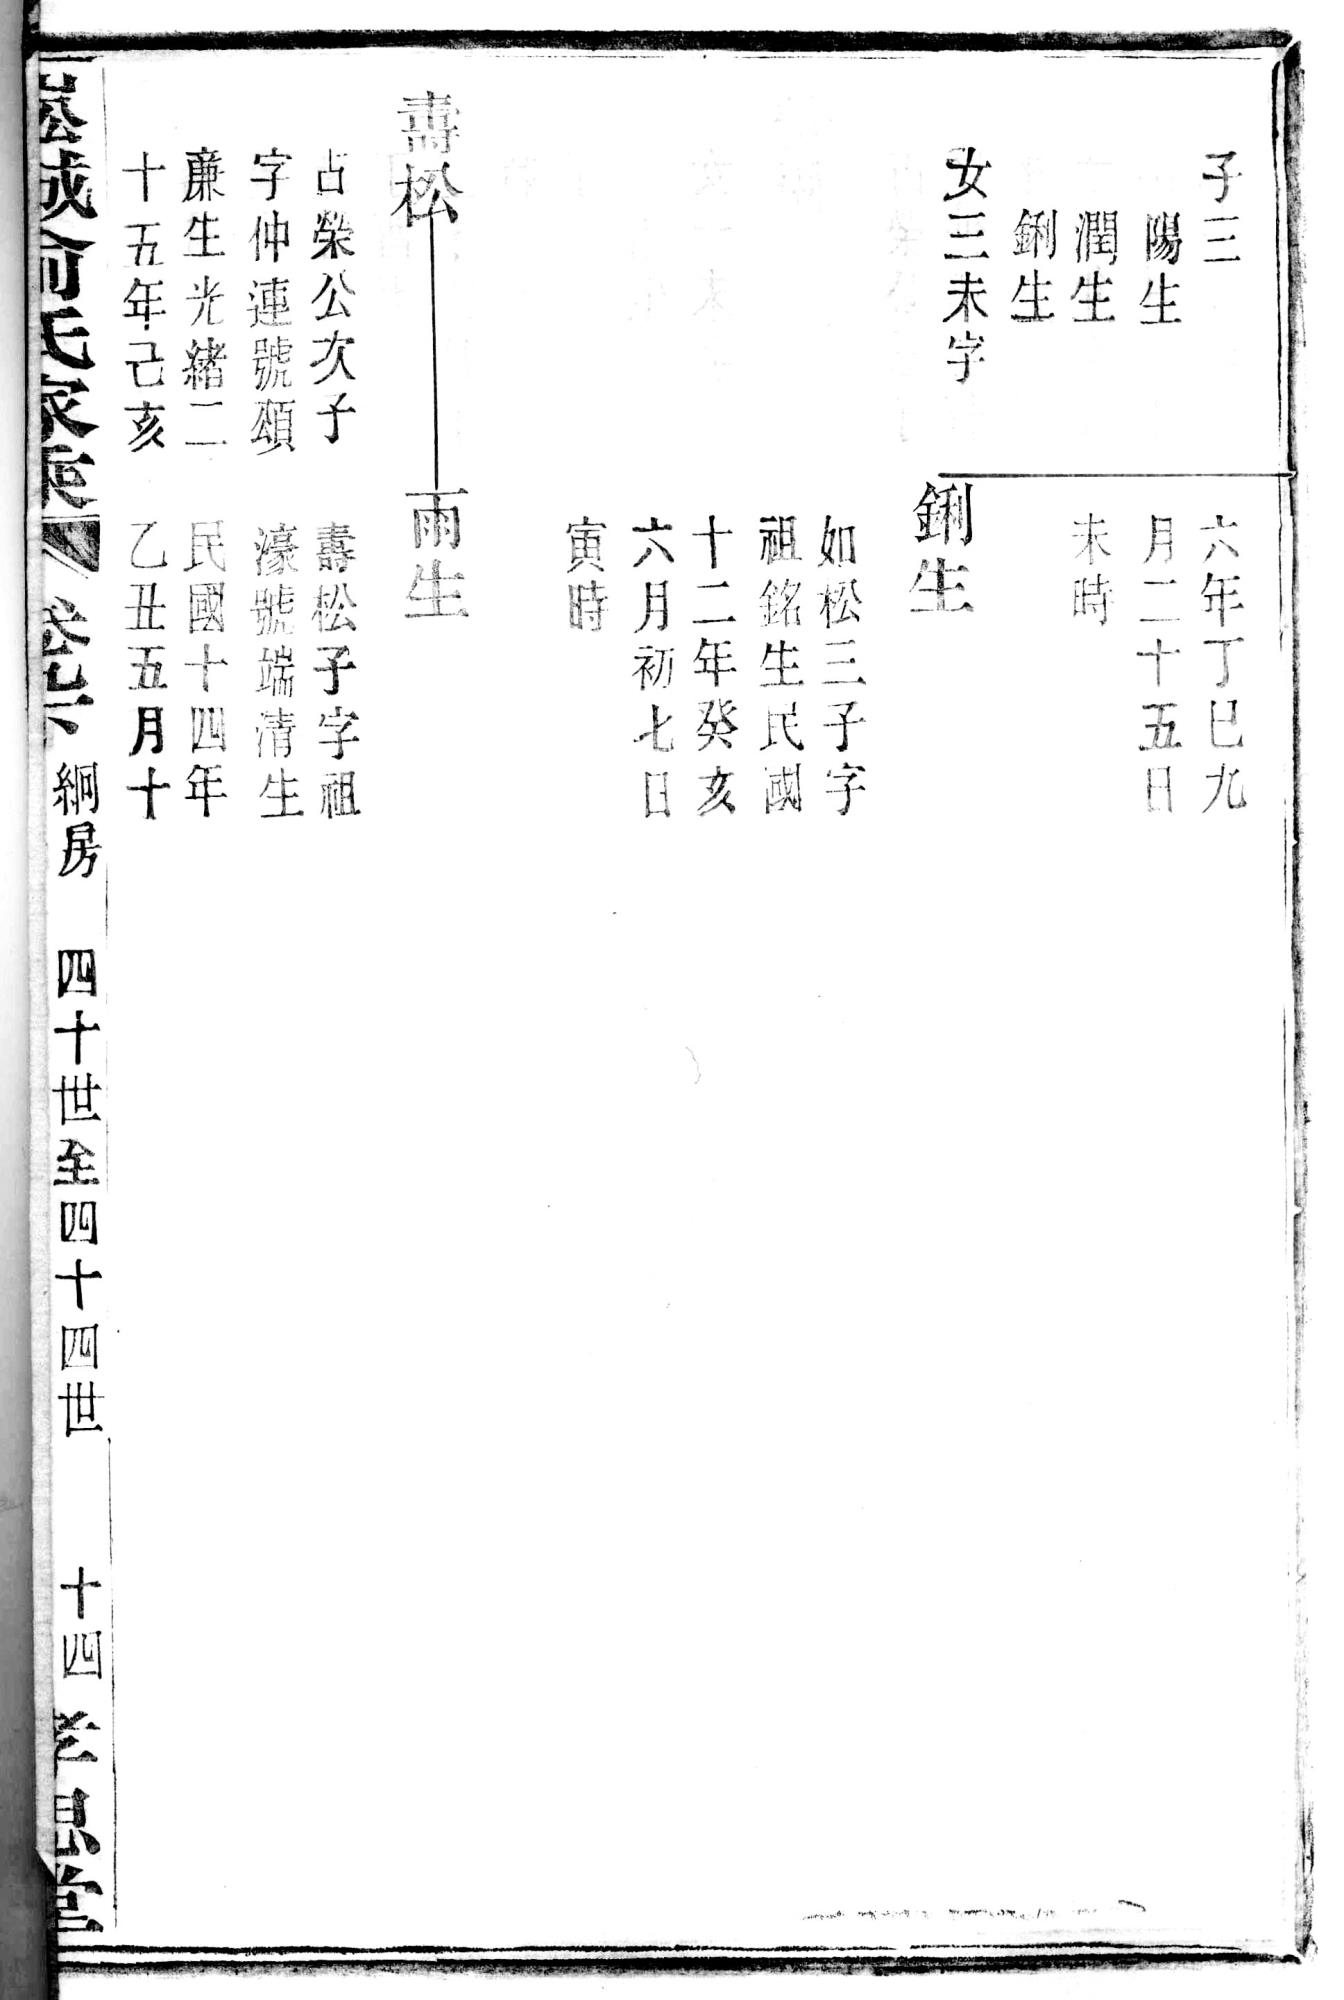 子三
陽生
潤生
鋓生
女三未字
六年丁巳九
月二十五日
未時
鋓生
如松三子字
祖銘生民國
十二年癸亥
六月初七日
寅時
壽松
占榮公次子
字仲連號頌
廉生光緒二
十五年己亥
雨生
壽松子字祖
濠號端清生
民國十四年
乙丑五月十
崧城俞氏家乘
卷九下
絅房
四十世至四十四世
十四
孝思堂